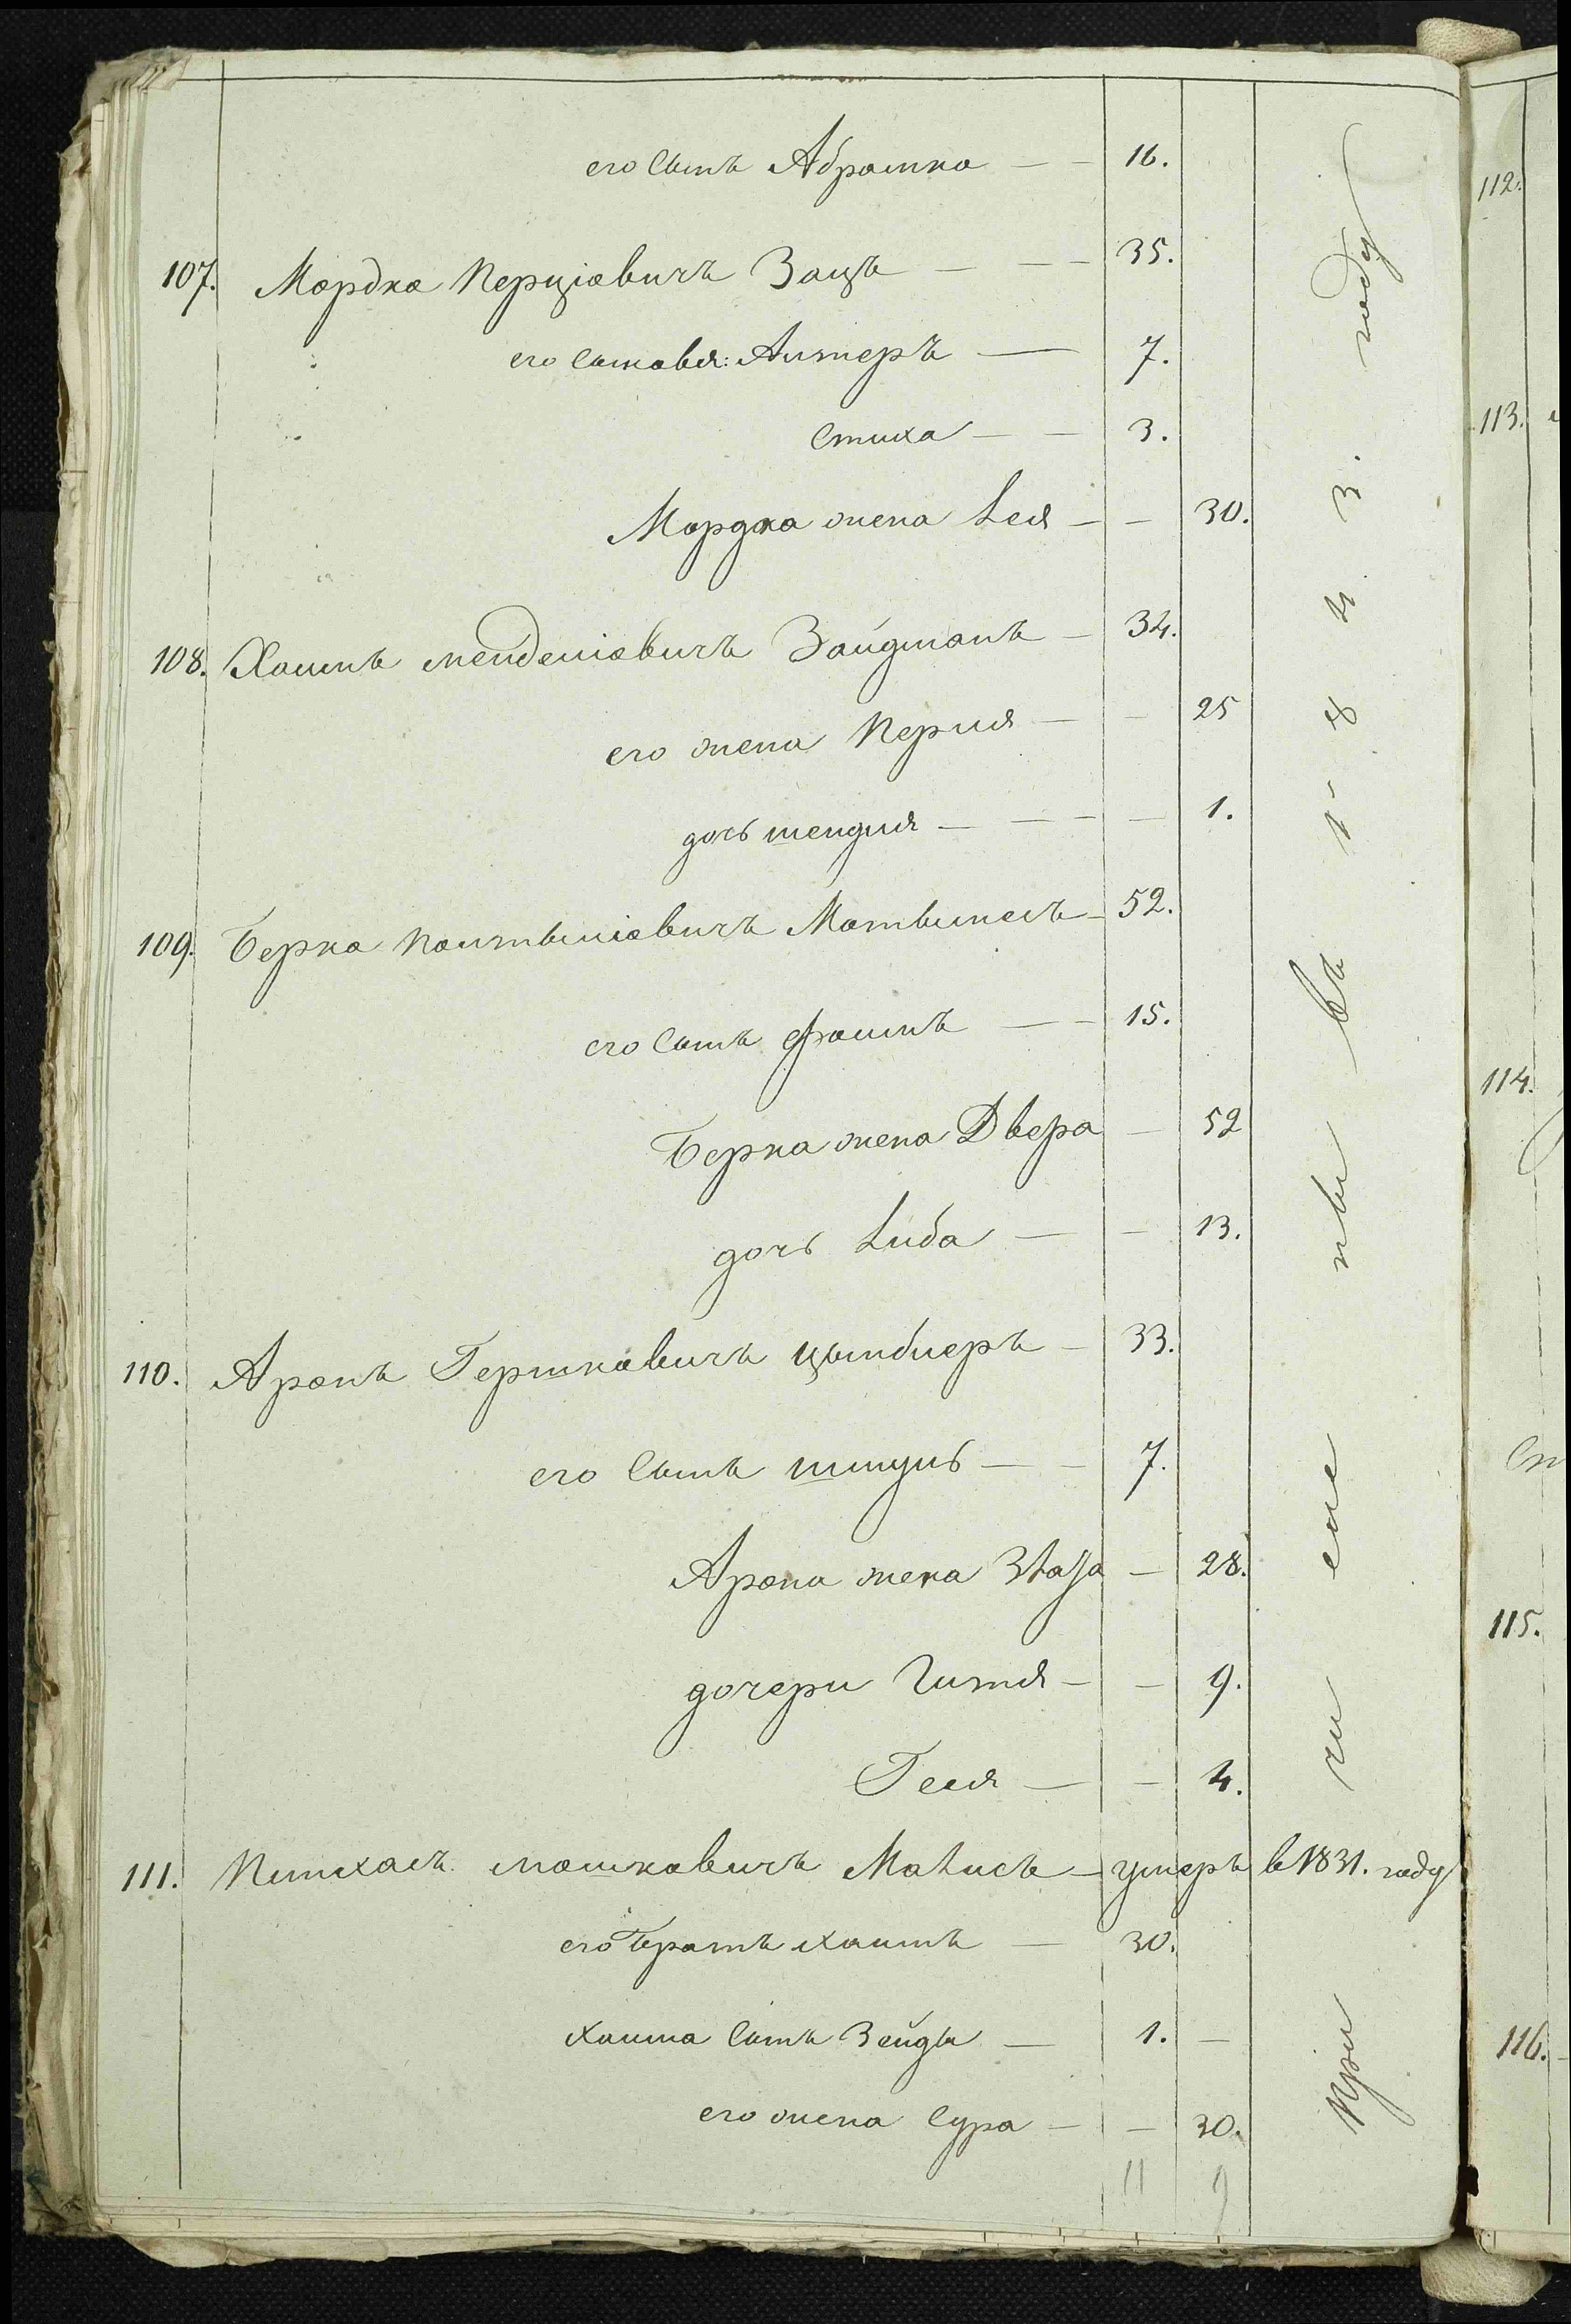 его сынъ Абрамка — — 16.
107. Мордка Перціовичъ Заяцъ — — — 35.
его сыновья: Алтеръ — 7.
Симха — — 3.
Мордка жена Лея — — 30.
108. Хаимъ Менделіовичъ Зайдманъ — 34.
его жена Перля — — 25
дочь Шендля — — — — 1.
109. Берка Пантыліовичъ — 52.
его сынъ Фроимъ — — 15.
Берка жена Двера — 52
дочь Либа — — 13.
110. Аронъ Гершковичъ Цымблеръ — 33.
его сынъ Шмуль — — 7.
Арона жена Злата — 28.
дочери Гитля — — 9.
Геля — — 4.
111. Пинхасъ Мошковичъ Малисъ — умеръ в 1831. году
его братъ Хаимъ — 30.
Хаима сынъ Зейды — 1. —
его жена Сура — — 30.
11 9
причислены въ 1843. году
112.
113.
114.
115.
116.